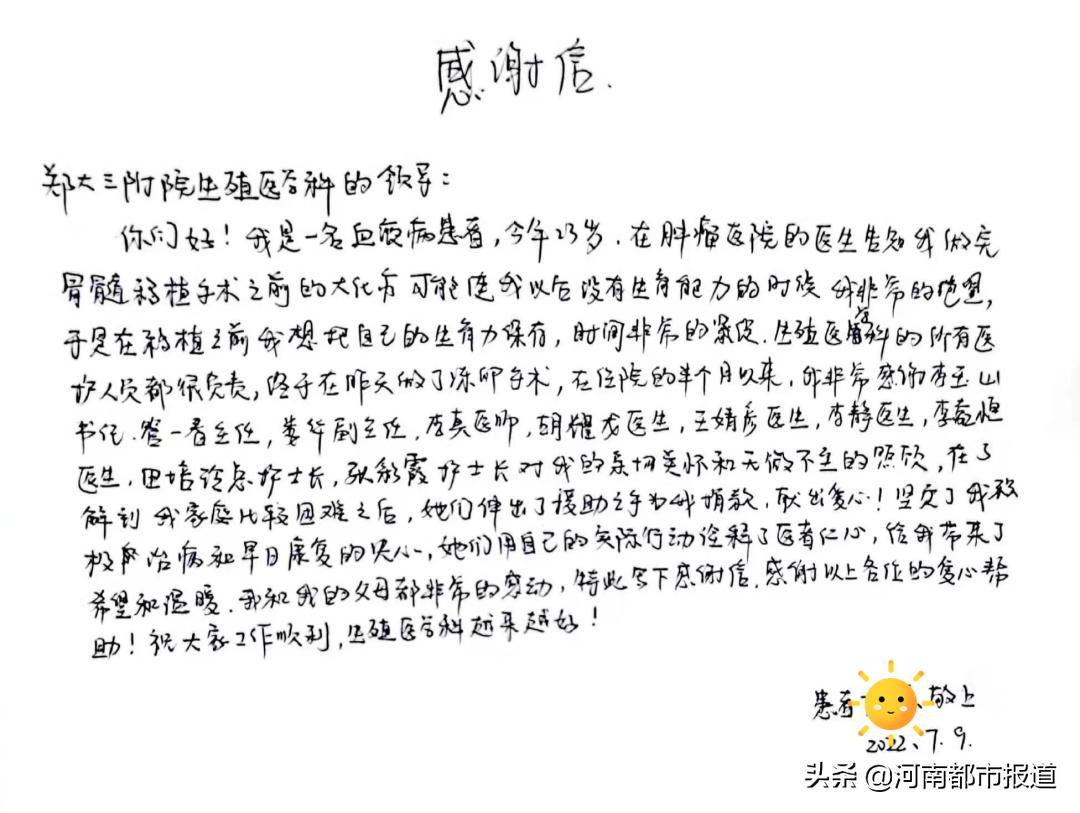 感谢信.
郑大三附院生殖医学科的领导:
你们好!我是一名血液病患者,今年23岁.在肿瘤医院的医生告知我做完
骨髓移植手术之前的大化疗可能使我以后没有生育能力的时候我非常的绝望,
于是在移植之前我想把自己的生育力保存,时间非常的紧迫.生殖医学科的所有医
护人员都很负责,终于在昨天做了冻卵手术,在住院的半个月以来,我非常感谢李玉山
书记.管一春主任,娄华副主任.李真医师,胡耀龙医生,王婧彦医生,李静医生,李
医生.田培玲总护士长,张彩霞护士长对我的亲切关怀和无微不至的照顾,在了
解到我家庭比较困难之后,她们伸出了援助之手为我捐款.献出爱心!坚定了我积
极治病和早日康复的决心,她们用自己的实际行动诠释了医者仁心,给我带来了
希望和温暖.我和我的父母都非常的感动,特此写下感谢信.感谢以上各位的爱心帮
助!祝大家工作顺利,生殖医学科越来越好!
患者 敬上
2022、7.9.
头条 @河南都市报道